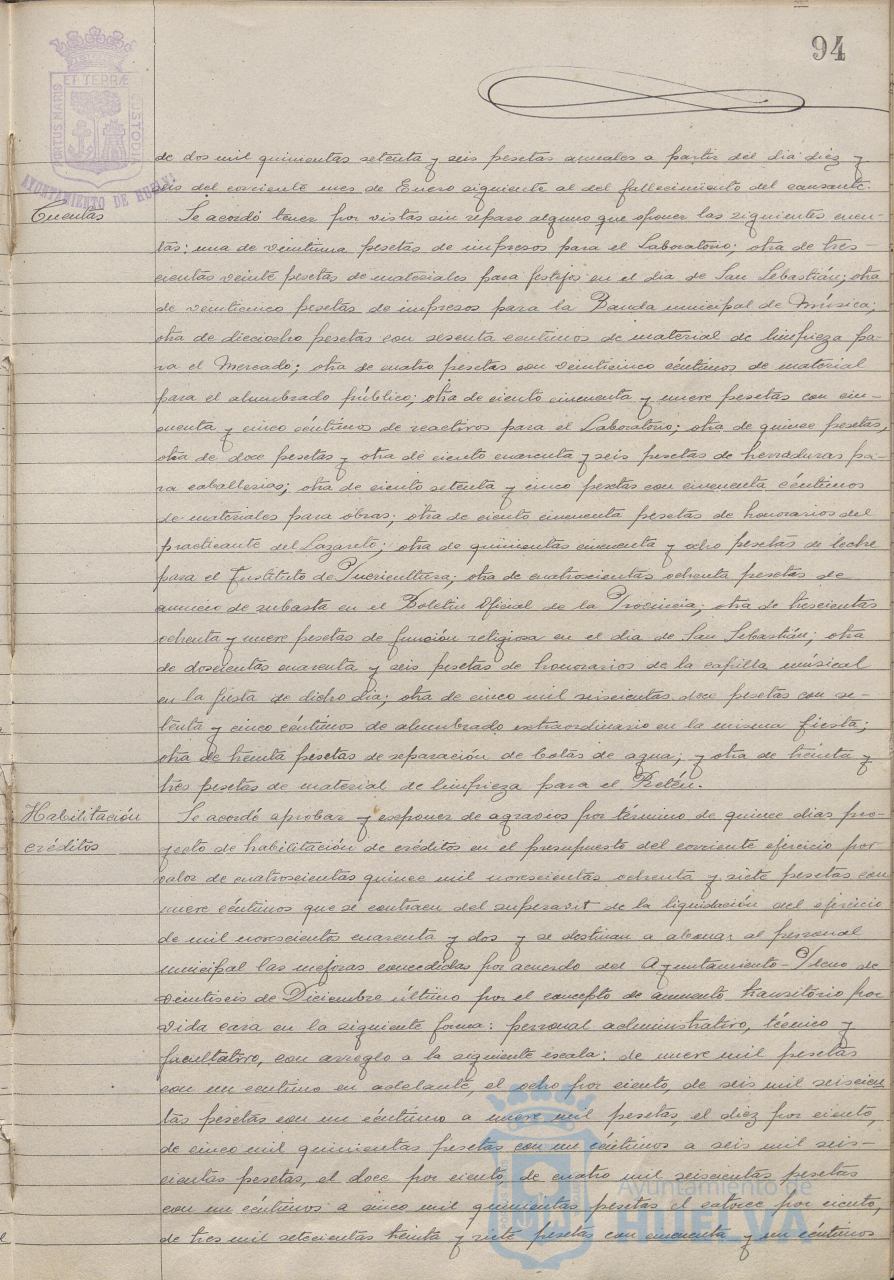 94
PORTUS MARIS ET TERRÆ CUSTODIA
AYUNTAMIENTO DE HUELVA
de dos mil quinientas setenta y seis pesetas anuales a partir del dia diez y
seis del corriente mes de Enero siguiente al del fallecimiento del causante.
Cuentas
Se acordó tener por vistas sin reparo alguno que oponer las siguientes cuen-
tas: una de veintiuna pesetas de impresos para el Laboratorio; otra de tres-
cientas veinte pesetas de materiales para festejos en el dia de San Sebastián; otra
de veinticinco pesetas de impresos para la Banda municipal de Música;
otra de dieciocho pesetas con sesenta centimos de material de limpieza pa-
ra el Mercado; otra de cuatro pesetas con veinticinco céntimos de material
para el alumbrado público; otra de ciento cincuenta y nueve pesetas con cin-
cuenta y cinco céntimos de reactivos para el Laboratorio; otra de quince pesetas,
otra de doce pesetas y otra de ciento cuarenta y seis pesetas de herraduras pa-
ra caballerias; otra de ciento setenta y cinco pesetas con cincuenta céntimos
de materiales para obras; otra de ciento cincuenta pesetas de honorarios del
practicante del Lazareto; otra de quinientas cincuenta y ocho pesetas de leche
para el Instituto de Puericultura; otra de cuatroscientas ochenta pesetas de
anuncio de subasta en el Boletin Oficial de la Provincia; otra de trescientas
ochenta y nueve pesetas de función religiosa en el dia de San Sebastián; otra
de doscientas cuarenta y seis pesetas de honorarios de la capilla músical
en la fiesta de dicho dia; otra de cinco mil seiscientas doce pesetas con se-
tenta y cinco céntimos de alumbrado extraordinario en la misma fiesta;
otra de treinta pesetas de reparación de botas de agua; y otra de treinta y
tres pesetas de material de limpieza para el Retén.
Habilitación
créditos
Se acordó aprobar y exponer de agravios por término de quince dias pro-
yecto de habilitación de créditos en el presupuesto del corriente ejercicio por
valor de cuatroscientas quince mil novescientas ochenta y siete pesetas con
nueve céntimos que se contraen del superavit de la liquidación del ejercicio
de mil novescientos cuarenta y dos y se destinan a abonar al personal
municipal las mejoras concedidas por acuerdo del Ayuntamiento-Pleno de
veintiseis de Diciembre último por el concepto de aumento transitorio por
vida cara en la siguiente forma: personal administrativo, técnico y
facultativo, con arreglo a la siguiente escala: de nueve mil pesetas
con un centimo en adelante, el ocho por ciento, de seis mil seiscien
tas pesetas con un céntimo a nueve mil pesetas, el diez por ciento,
de cinco mil quinientas pesetas con un céntimos a seis mil seis-
cientas pesetas, el doce por ciento, de cuatro mil seiscientas pesetas
con un céntimos a cinco mil quinientas pesetas el catorce por ciento,
de tres mil setecientas treinta y siete pesetas con cincuenta y un céntimos
Ayuntamiento de
HUELVA